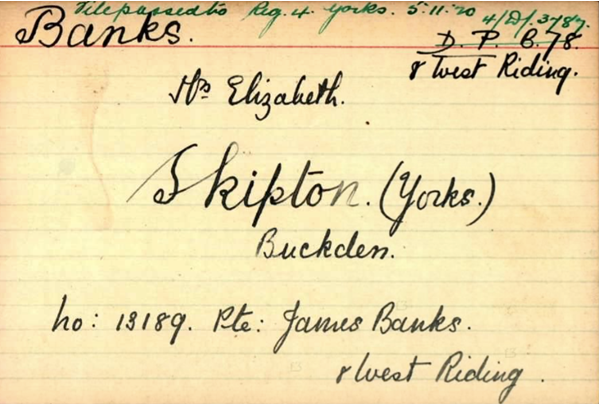 File passed to Reg. 4. Yorks. 5.11.20
4/D/.3787.
Banks.
D. P. B. 78.
8 West Riding.
Mrs Elizabeth.
Skipton. (Yorks.)
Buckden.
No: 13189. Pte: James Banks.
8 West Riding.